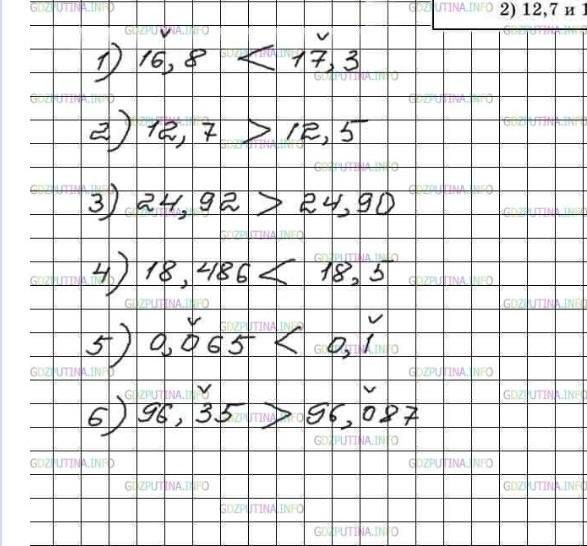 2) 12,7 и 1
1) 16,8 < 17,3
2) 12,7 > 12,5
3) 24,92 > 24,90
4) 18,486 < 18,5
5) 0,065 < 0,1
6) 96,35 > 96,087
GDZPUTINA.INFO